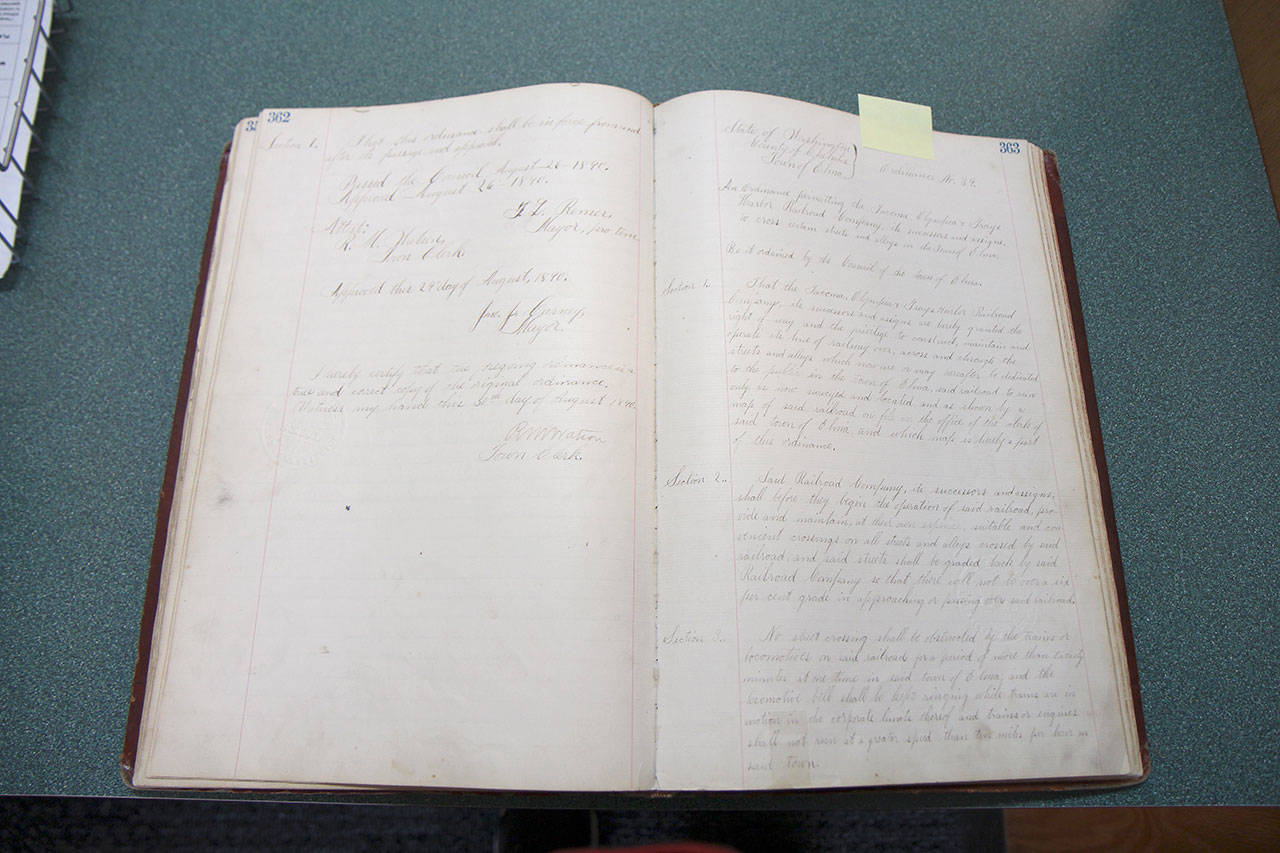 362
Section 1.
That this ordinance shall be in force from and
after its passage and approval.
Passed the Council August 26 1890.
Approved August 26 - 1890.
Mayor, pro tem
Attest:
Town Clerk.
Approved this 29 day of August, 1890.
Mayor.
I hereby certify that the foregoing ordinance is a
true and correct copy of the original ordinance.
Witness my hand this 30th day of August 1890.
R M Watson
Town Clerk.
363
State of Washington
County of Chehalis
Town of Elma.
Ordinance No. 39.
An Ordinance permitting the Tacoma, Olympia & Grays
Harbor Railroad Company, its successors and assigns,
to cross certain streets and alleys in the Town of Elma.
Be it ordained by the Council of the Town of Elma.
Section 1.
That the Tacoma, Olympia & Grays Harbor Railroad
Company, its successors and assigns are hereby granted the
right of way and the privilege to construct, maintain and
operate its line of railway over, across and through the
streets and alleys which now are or may hereafter be dedicated
to the public in the town of Elma, said railroad to run
only as now surveyed and located and as shown by a
map of said railroad on file in the office of the clerk of
said town of Elma, and which map is hereby a part
of this ordinance.
Section 2.
Said Railroad Company, its successors and assigns,
shall before they begin the operation of said railroad, pro-
vide and maintain, at their own expense, suitable and con-
venient crossings on all streets and alleys crossed by said
railroad and said streets shall be graded back by said
Railroad Company so that there will not be over a six
per cent grade in approaching or passing over said railroad.
Section 3.
No street crossing shall be obstructed by the trains or
locomotives on said railroad for a period of more than twenty
minutes at one time in said town of Elma, and the
locomotive bell shall be kept ringing while trains are in
motion in the corporate limits thereof and trains or engines
shall not run at a greater speed than ten miles per hour in
said town.